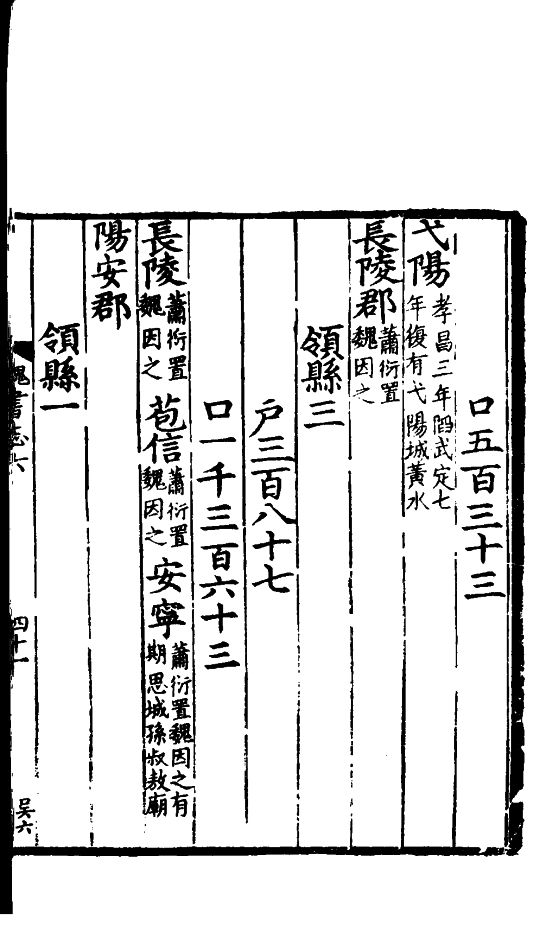 口五百三十三
弋陽孝昌三年陷武定七年復有弋陽城黃水
長陵郡蕭衍置魏因之
領縣三
戶三百八十七
口一千三百六十三
長陵蕭衍置魏因之苞信蕭衍置魏因之安寧蕭衍置魏因之有期思城孫叔敖廟
陽安郡
領縣一
魏書志六
四十一
吴六